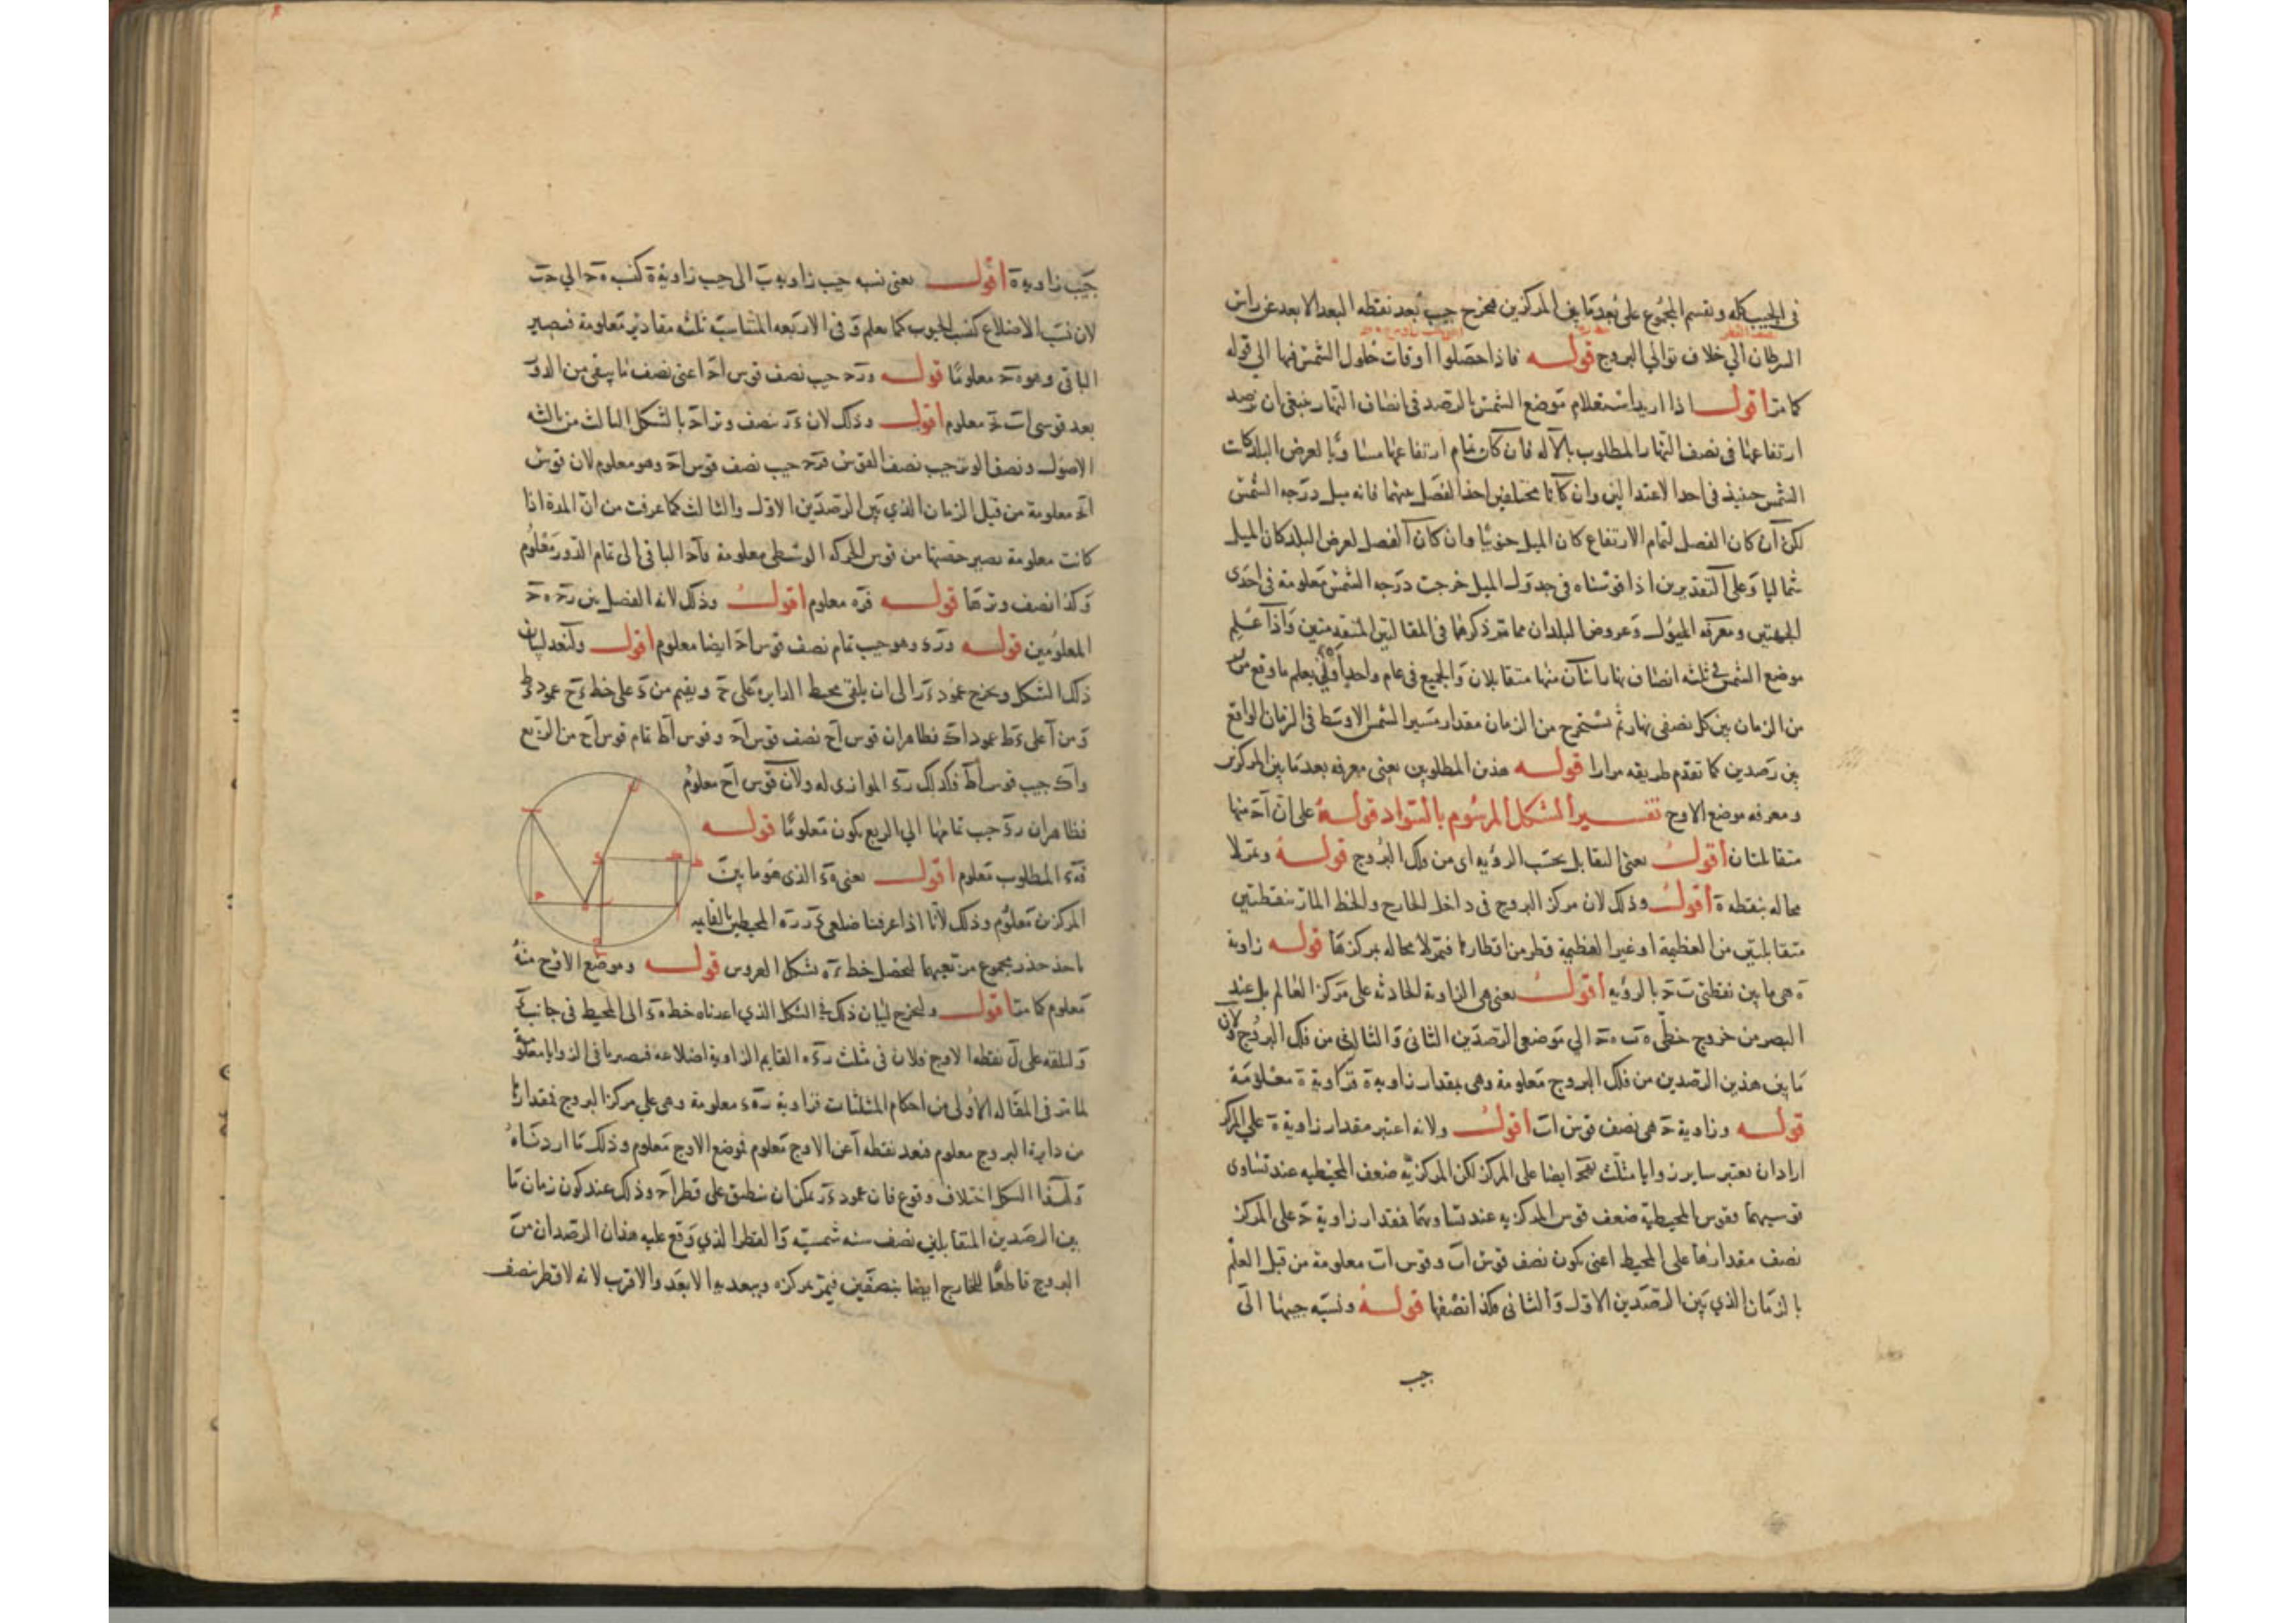 في الجيب كله ونقسم المجموع على بعد ما بين المركزين فيخرج جيب بعد نقطه البعد الابعد عن راس
السرطان الي خلاف توالي البروج قوله فاذا حصلوا اوقات حلول الشمس فيها الي قوله
كما مر اقول اذا اريد استعلام موضع الشمس بالرصد في انصاف النهار ينبغي ان يرصد
ارتفاعها في نصف النهار المطلوب بالآله فان كان تمام ارتفاعها مساويا لعرض البلد كانت
الشمس حينئذ في احد الاعتدالين وان كانا مختلفين اخذ الفضل بينهما فانه ميل درجه الشمس
لكن ان كان الفضل لتمام الارتفاع كان الميل جنوبيا وان كان الفضل لعرض البلد كان الميل
شماليا وعلى التقديرين اذا قوسناه في جدول الميل خرجت درجه الشمس معلومة في احدى
الجهتين ومعرفه الميول وعروض البلدان مما مر ذكرها في المقالتين المتقدمتين واذا علم
موضع الشمس في ثلثه انصاف نهار اثنان منها متقابلان والجميع في عام واحد يعلم ما وقع
من الزمان بين كل نصفي نهار ثم نستخرج من الزمان مقدار مسير الشمس الاوسط في الزمان الواقع
بين رصدين كما تقدم طريقه مرارا قوله هذين المطلوبين يعني معرفه بعد ما بين المركزين
ومعرفه موضع الاوج تفسير الشكل المرسوم بالسواد قوله على ان آ حَ منها
متقابلتان اقول يعني التقابل بحسب الرؤيه اى من فلك البروج قوله ويمر لا
محاله بنقطه ه اقول وذلك لان مركز البروج في داخل الخارج والخط المار بنقطتين
متقابلتين من العظيمة او غير العظيمة قطر من اقطارها فيمر لا محاله بمركزها قوله زاوية
ه هي ما بين نقطتي ب حَ بالرؤيه اقول يعني هي الزاوية الحادثه على مركز العالم بل عند
البصر من خروج خطى ه ب ه حَ الي موضعي الرصدين الثاني والثالث من فلك البروج ولان
ما بين هذين الرصدين من فلك البروج معلومة وهي بمقدار زاوية ه فزاوية ه معلومة
قوله وزاوية حَ هى نصف قوس اب اقول ولانه اعتبر مقدار زاوية ه على المركز
اراد ان يعتبر ساير زوايا مثلث ايضا على المركز لكن المركزيه ضعف المحيطيه عند تساوى
قوسيهما وقوس المحيطية ضعف قوس المركزيه عند تساويهما فمقدار زاوية حَ على المركز
نصف مقدارها على المحيط اعنى يكون نصف قوس اب وقوس اب معلومة من قبل العلم
بالزمان الذي بين الرصدين الاول والثانى فكذا نصفها قوله ونسبه جيبها الى
جيب
جيب زاوية ه اقول يعنى نسبه جيب زاويه ب الى جيب زاوية ه كنسبه ه حَ الي حَ ب
لان نسب الاضلاع كنسب الجيوب كما يعلم وفي الاربعه المتناسبة ثلثه مقادير معلومة فيصير
الباقي وهو ه حَ معلوما قوله وز حَ جيب نصف قوس ا حَ اعنى نصف ما يبقى من الدور
بعد قوسى اب ب حَ معلوم اقول وذلك لان ز حَ نصف وتر ا حَ بالشكل الثالث من ثالثه
الاصول ونصف الوتر جيب نصف القوس فز حَ جيب نصف قوس ا حَ وهو معلوم لان قوس
ا ب حَ معلومة من قبل الزمان الذي بين الرصدين الاول والثالث كما عرفت من ان المدة اذا
كانت معلومة يصير حصتها من قوس الحركه الوسطى معلومة فا حَ الباقى الى تمام الدور معلوم
وكذا نصف وترها قوله فز ه معلوم اقول وذلك لانه الفضل بين ز حَ ه حَ
المعلومين قوله وز ء وهو جيب تمام نصف قوس ا حَ ايضا معلوم اقول ولنعد لبيان
ذلك الشكل ونخرج عمود ء ز الى ان يلقى محيط الدايرة على ح ونقيم من ء على خط ء ح عمود ء ط
ومن ا على ء ط عمود اك فظاهر ان قوس ا ح نصف قوس ا حَ وقوس اط تمام قوس ا ح من الربع
واك جيب قوس اط فكذلك ز ء الموازى له ولان قوس ا ح معلوم
فظاهر ان ز ء جيب تمامها الي الربع يكون معلوما قوله
فه ء المطلوب معلوم اقول يعنى ه ء الذى هو ما بين
المركزين معلوم وذلك لانا اذا عرفنا ضلعى ء ز ز ه المحيطين بالقايمه
ناخذ جذر مجموع مربعيهما ليحصل خط ء ه بشكل العروس قوله وموضع الاوج منه
معلوم كما مر اقول وليخرج لبيان ذلك في الشكل الذي اعدناه خط ه ء الى المحيط في جانب ء
وليلقه على ل نقطه الاوج فلان في مثلث ز ء ه القايم الزاوية اضلاعه فيصير باقي الزوايا معلومة
لما مر في المقاله الاولى من احكام المثلثات فزاوية ز ه ء معلومة وهى على مركز البروج فمقدارها
من دايرة البروج معلوم فبعد نقطه آ عن الاوج معلوم فموضع الاوج معلوم وذلك ما اردناه
ولهذا الشكل اختلاف وقوع فان عمود ء ز يمكن ان ينطبق على قطر ا حَ وذلك عند كون زمان ما
بين الرصدين المتقابلين نصف سنه شمسيه والقطر الذي وقع عليه هذان الرصدان من
البروج قاطعا للخارج ايضا بنصفين فيمر بمركزه وببعديه الابعد والاقرب لانه لا قطر ينصف